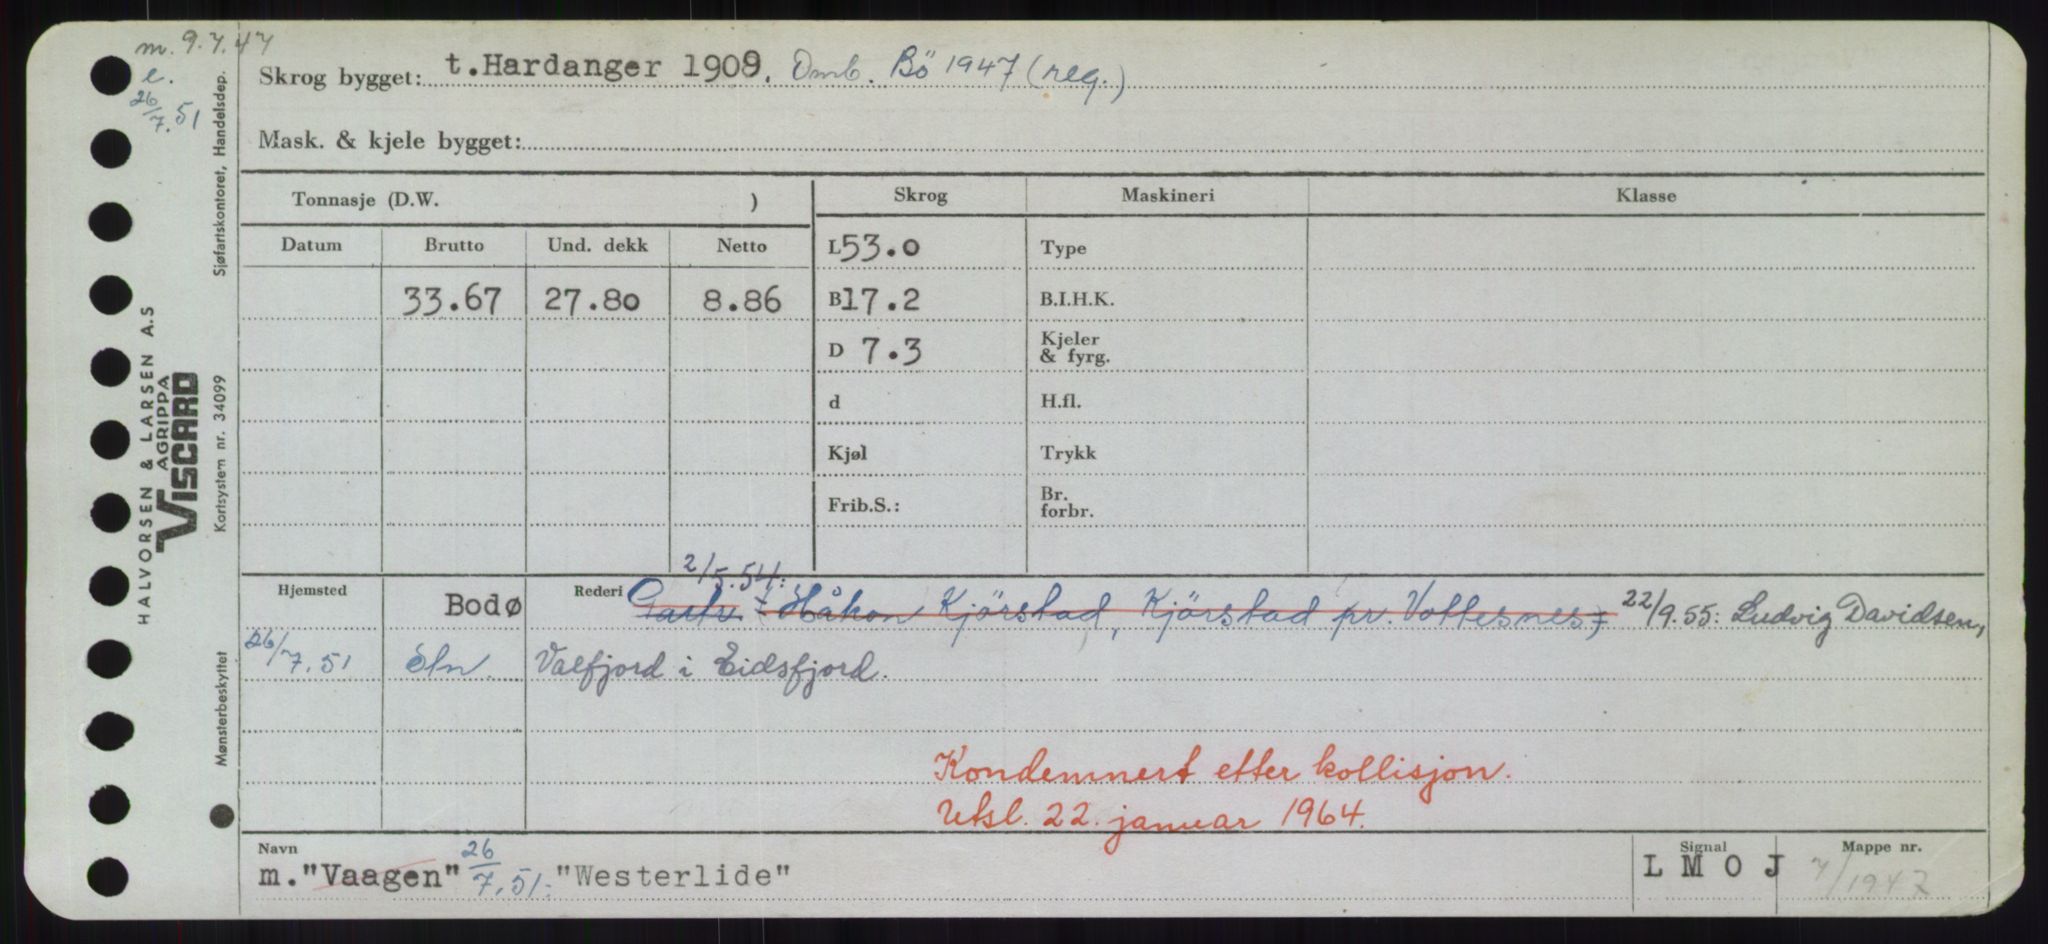 m. 9.7.47
e.
26/7.51
Skrog bygget: t.Hardanger 1909. Omb. Bö 1947 (reg.)
Mask. & kjele bygget:
Tonnasje (D.W. )
Skrog
Maskineri
Klasse
Datum
Brutto
Und. dekk
Netto
33.67
27.80
8.86
L 53.0
B 17.2
D 7.3
d
Kjøl
Frib.S.:
Type
B.I.H.K.
Kjeler
& fyrg.
H.fl.
Trykk
Br.
forbr.
Hjemsted
Bodø
Rederi
2/5.54:
Håkon Kjörstad, Kjörstad pr. Vollesnes; 22/9.55: Ludvig Davidsen,
26/7.51 Sln. Valfjord i Eidsfjord.
Kondemnert etter kollisjon.
Utsl. 22. januar 1964.
Navn
m."Vaagen" 26/7.51: "Westerlide"
Signal
L M O J
Mappe nr.
7/1947
HALVORSEN & LARSEN A.S
AGRIPPA
VISCARD
Sjøfartskontoret, Handelsdep.
Kortsystem nr. 34099
Mønsterbeskyttet